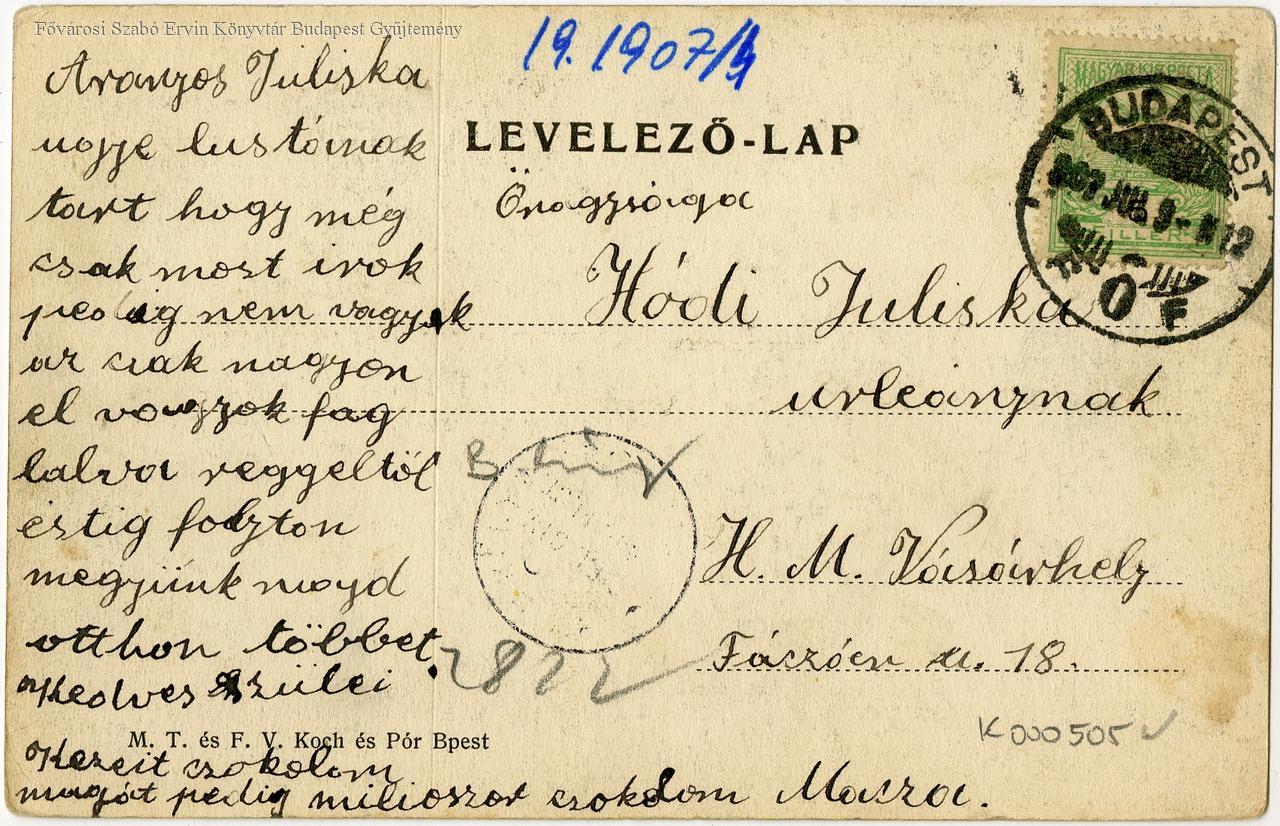 Fővárosi Szabó Ervin Könyvtár Budapest Gyűjtemény
19.1907/4
Aranyos Juliska
ugye lustának
tart hogy még
csak most irok
pedig nem vagyok
az csak nagyon
el vagyok fog
lalva reggeltöl
éstig folyton
megyünk majd
otthon többet
Kedves szülei
Kezeit csokolom
magát pedig milioszor csokolom Macza.
LEVELEZŐ-LAP
MAGYAR KIR. POSTA
FILLÉR
BUDAPEST
Önagysága
Hódi Juliska
urleánynak
H. M. Vásárhely
u. 18.
2822
K000505
M. T. és F. V. Koch és Pór Bpest